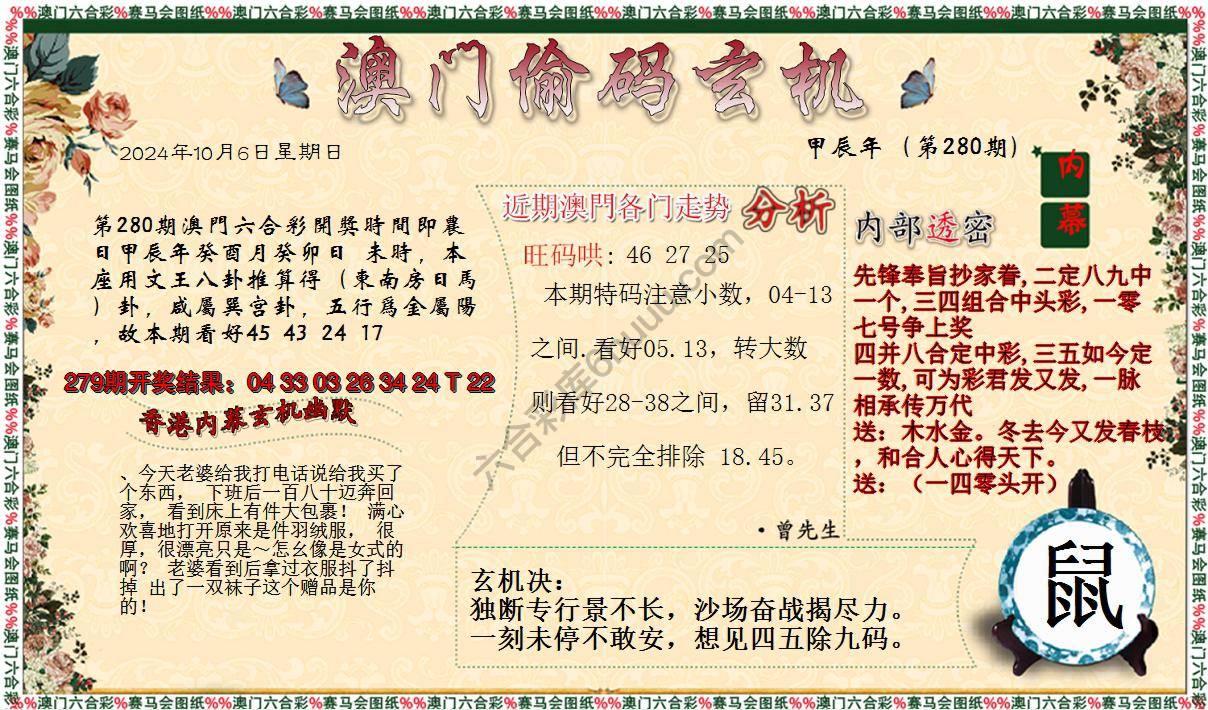 %%澳门六合彩%赛马会图纸%%澳门六合彩%赛马会图纸%%澳门六合彩%赛马会图纸%%澳门六合彩%赛马会图纸
澳门偷码玄机
2024年10月6日星期日
甲辰年（第280期）
内
幕
第280期澳門六合彩開獎時間即農
日甲辰年癸酉月癸卯日 未時，本
座用文王八卦推算得（東南房日馬
）卦，咸屬巽宫卦，五行爲金屬陽
，故本期看好45 43 24 17
279期开奖结果：04 33 03 26 34 24 T 22
香港内幕玄机幽默
、今天老婆给我打电话说给我买了
个东西， 下班后一百八十迈奔回
家， 看到床上有件大包裹！ 满心
欢喜地打开原来是件羽绒服， 很
厚，很漂亮只是～怎幺像是女式的
啊？ 老婆看到后拿过衣服抖了抖
掉 出了一双袜子这个赠品是你
的！
近期澳門各门走势 分析
旺码哄: 46 27 25
本期特码注意小数，04-13
之间.看好05.13，转大数
则看好28-38之间，留31.37
但不完全排除 18.45。
·曾先生
内部透密
先锋奉旨抄家眷,二定八九中
一个,三四组合中头彩,一零
七号争上奖
四并八合定中彩,三五如今定
一数,可为彩君发又发,一脉
相承传万代
送：木水金。冬去今又发春枝
，和合人心得天下。
送：（一四零头开）
玄机决：
独断专行景不长，沙场奋战揭尽力。
一刻未停不敢安，想见四五除九码。
鼠
%%澳门六合彩%赛马会图纸%%澳门六合彩%赛马会图纸%%澳门六合彩%赛马会图纸%%澳门六合彩%赛马会图纸